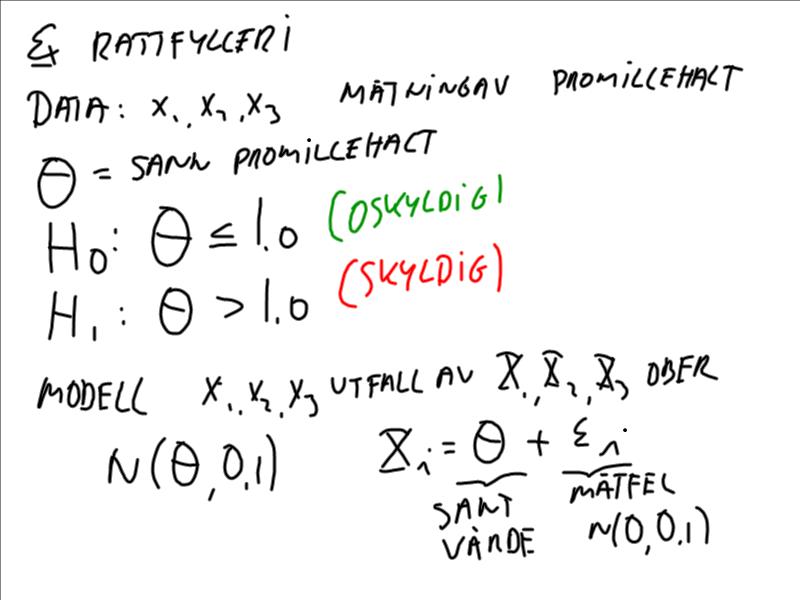 Ex RATTFYLLERI
DATA: x₁, x₂, x₃ MÄTNING AV PROMILLEHALT
θ = SANN PROMILLEHALT
H₀: θ ≤ 1.0 (OSKYLDIG)
H₁: θ > 1.0 (SKYLDIG)
MODELL x₁, x₂, x₃ UTFALL AV X₁, X₂, X₃ OBER
N(θ, 0.1) Xᵢ = θ + εᵢ
SANT VÄRDE
MÄTFEL
N(0, 0.1)